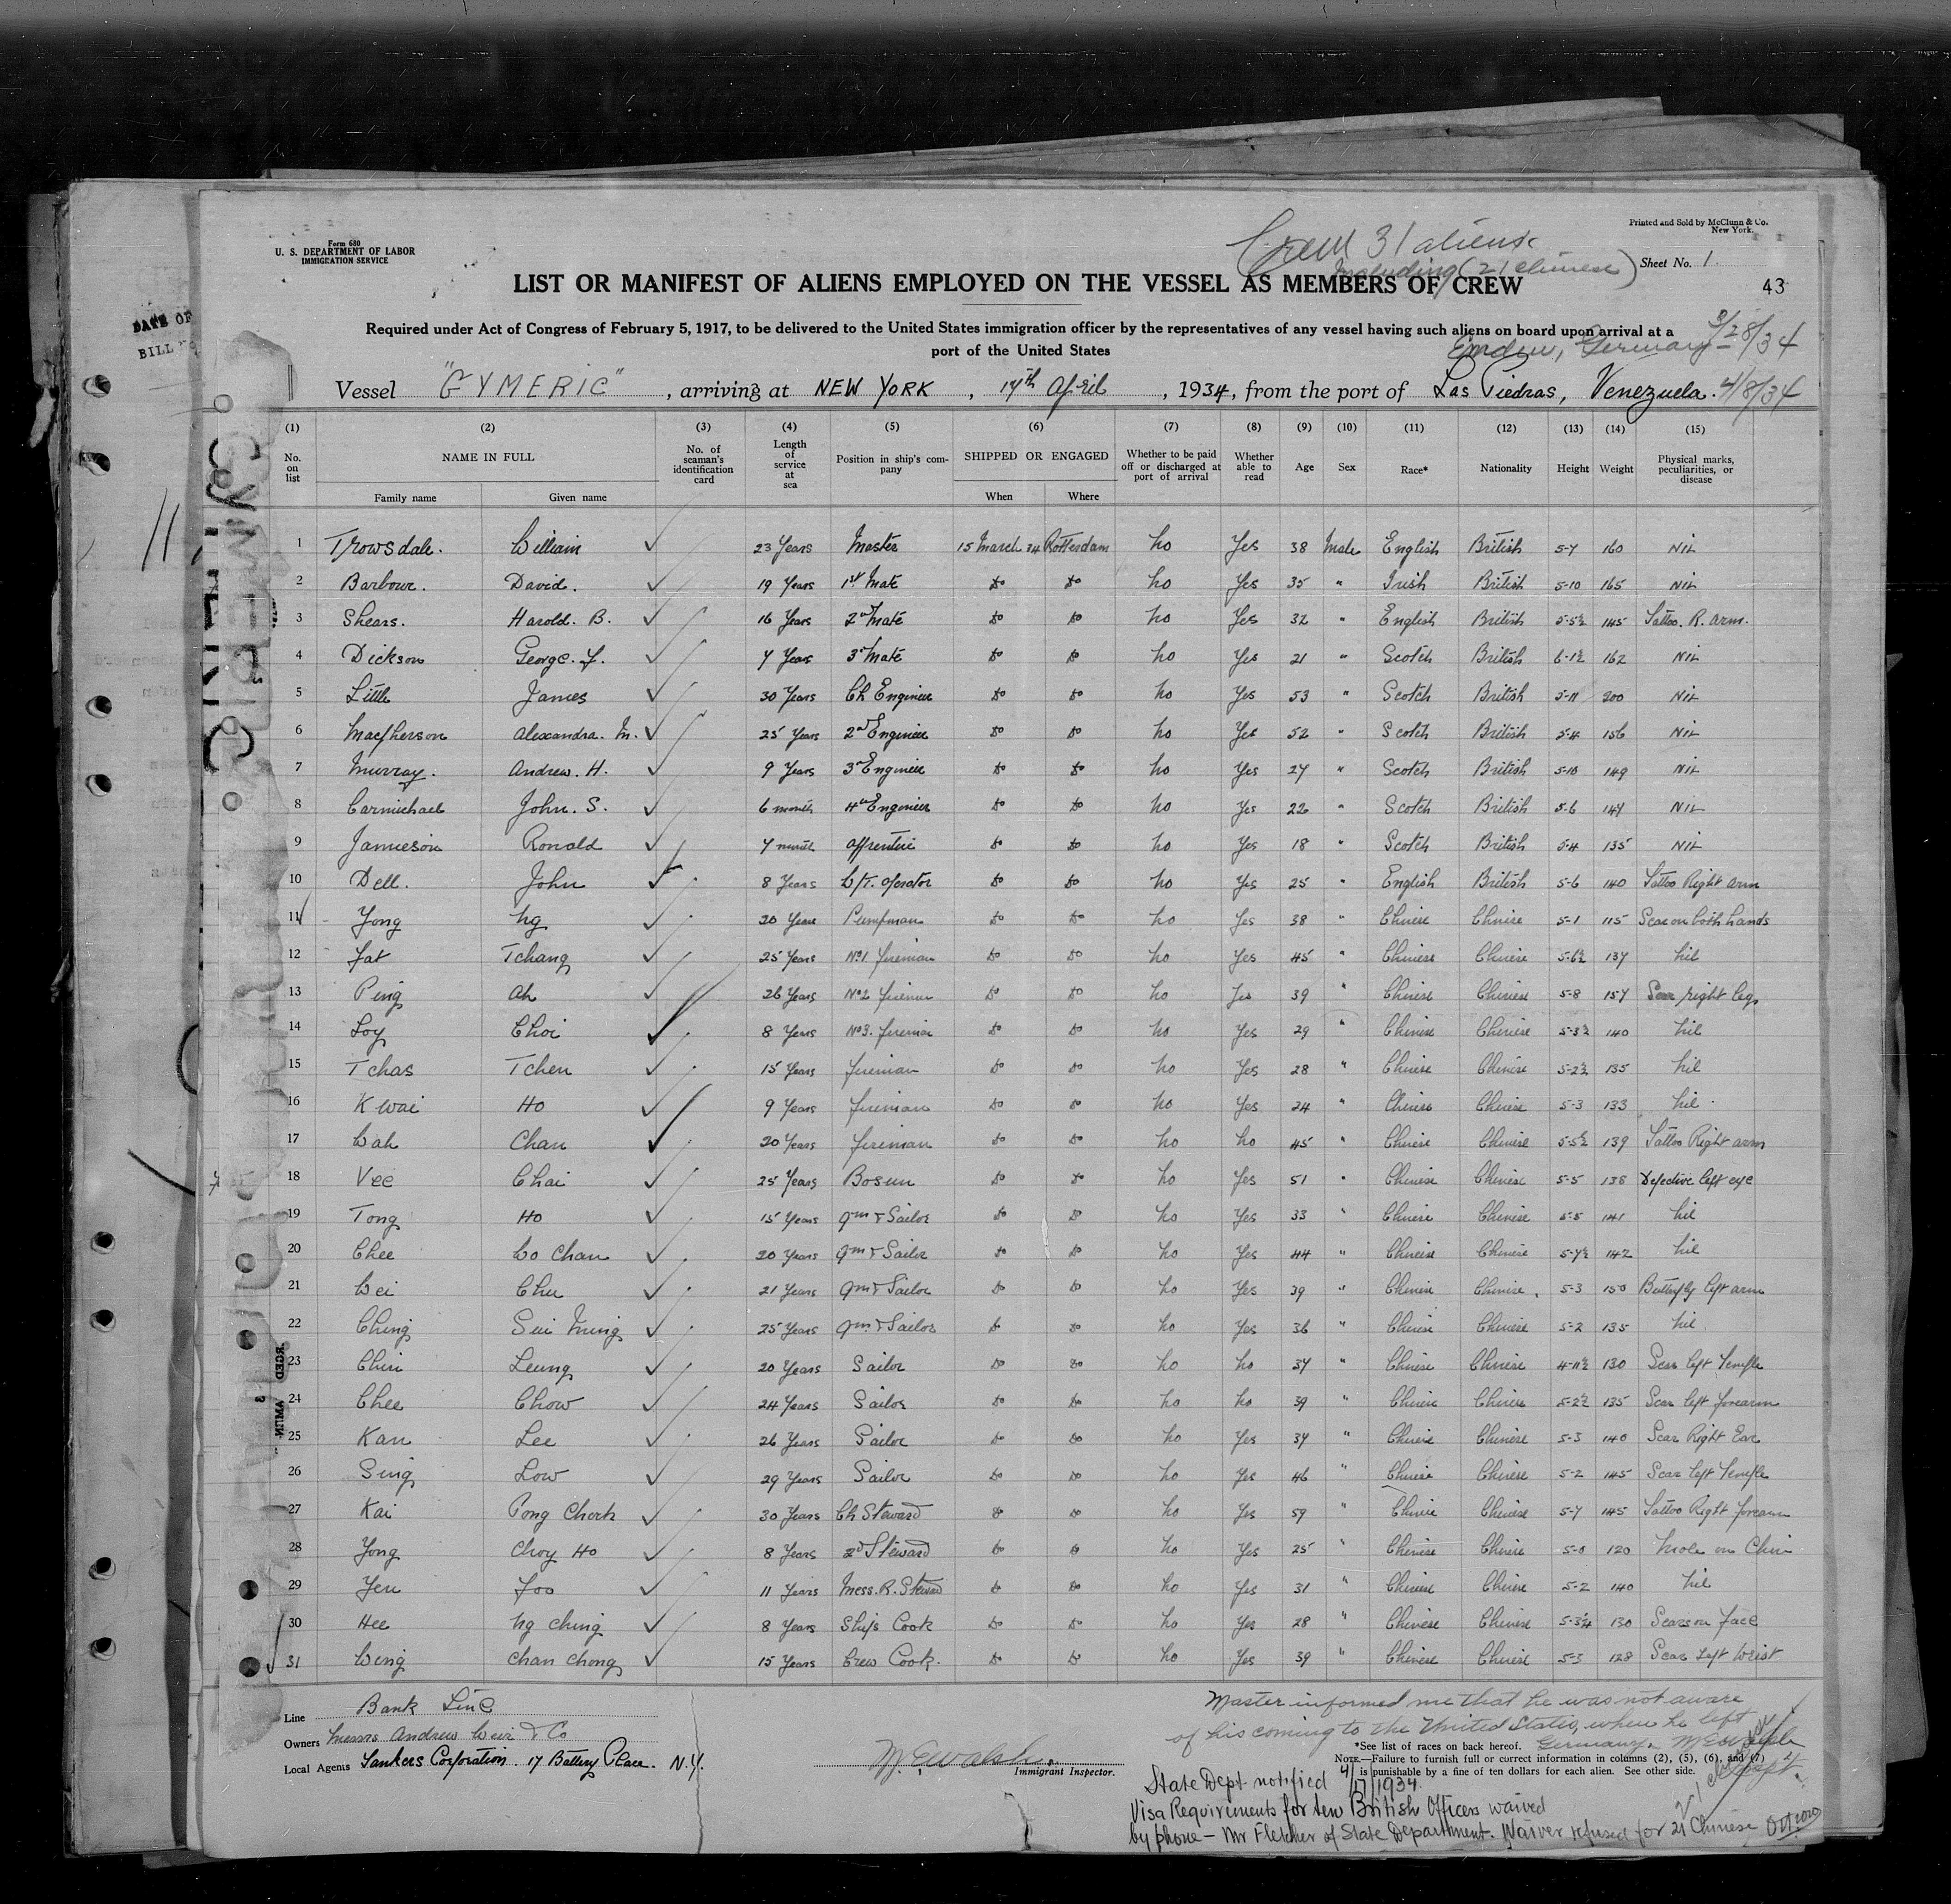 Form 680
U. S. DEPARTMENT OF LABOR
IMMIGRATION SERVICE
Printed and Sold by McClunn & Co.
New York.
Crew 31 aliens
including (21 Chinese)
Sheet No. 1.
LIST OR MANIFEST OF ALIENS EMPLOYED ON THE VESSEL AS MEMBERS OF CREW
43
Required under Act of Congress of February 5, 1917, to be delivered to the United States immigration officer by the representatives of any vessel having such aliens on board upon arrival at a
port of the United States
Emden, Germany - 3/28/34
Vessel "GYMERIC", arriving at NEW YORK, 17th April, 1934, from the port of Las Piedras, Venezuela. 4/8/34
(1) (2) (3) (4) (5) (6) (7) (8) (9) (10) (11) (12) (13) (14) (15)
No. on list NAME IN FULL No. of seaman's identification card Length of service at sea Position in ship's company SHIPPED OR ENGAGED Whether to be paid off or discharged at port of arrival Whether able to read Age Sex Race* Nationality Height Weight Physical marks, peculiarities, or disease
Family name Given name When Where
1 Trowsdale. William 23 Years Master 15 March 34 Rotterdam No Yes 38 Male English British 5-7 160 NIL
2 Barbour. David. 19 Years 1st Mate do do No Yes 35 " Irish British 5-10 165 NIL
3 Shears. Harold. B. 16 Years 2nd Mate do do No Yes 32 " English British 5-5½ 145 Tattoo. R. arm.
4 Dickson George. Y. 7 Years 3rd Mate do do No Yes 21 " Scotch British 6-1½ 162 NIL
5 Little James 30 Years Ch Engineer do do No Yes 53 " Scotch British 5-11 200 NIL
6 Macpherson Alexandra. M. 25 Years 2nd Engineer do do No Yes 52 " Scotch British 5-4 156 NIL
7 Murray. Andrew. H. 9 Years 3rd Engineer do do No Yes 27 " Scotch British 5-10 149 NIL
8 Carmichael John. S. 6 month 4th Engineer do do No Yes 22 " Scotch British 5-6 147 NIL
9 Jamieson Ronald 7 month Apprentice do do No Yes 18 " Scotch British 5-4 135 NIL
10 Dell. John 8 Years W/T. Operator do do No Yes 25 " English British 5-6 140 Tattoo Right arm
11 Yong Ng 20 Years Pumpman do do No Yes 38 " Chinese Chinese 5-1 115 Scar on both hands
12 Fat Tchang 25 Years No1 fireman do do No Yes 45 " Chinese Chinese 5-6½ 137 Nil
13 Ping Ah 26 Years No2 fireman do do No Yes 39 " Chinese Chinese 5-8 157 Scar right leg
14 Loy Choi 8 Years No3. fireman do do No Yes 29 " Chinese Chinese 5-3½ 140 Nil
15 Tchas Tchen 15 Years fireman do do No Yes 28 " Chinese Chinese 5-2½ 135 Nil
16 Kwai Ho 9 Years fireman do do No Yes 24 " Chinese Chinese 5-3 133 Nil
17 Wah Chan 20 Years fireman do do No No 45 " Chinese Chinese 5-5½ 139 Tattoo Right arm
18 Vee Chai 25 Years Bosun do do No Yes 51 " Chinese Chinese 5-5 138 Defective left eye
19 Tong Ho 15 Years Qm & Sailor do do No Yes 33 " Chinese Chinese 5-5 141 Nil
20 Chee Wo Chan 20 Years Qm & Sailor do do No Yes 44 " Chinese Chinese 5-7½ 142 Nil
21 Wei Chu 21 Years Qm & Sailor do do No Yes 39 " Chinese Chinese 5-3 150 Butterfly left arm
22 Ching Sui Ming 25 Years Qm & Sailor do do No Yes 36 " Chinese Chinese 5-2 135 Nil
23 Chin Leung 20 Years Sailor do do No No 37 " Chinese Chinese 4-11½ 130 Scar left Temple
24 Chee Chow 24 Years Sailor do do No No 39 " Chinese Chinese 5-2½ 135 Scar left forearm
25 Kan Lee 26 Years Sailor do do No Yes 37 " Chinese Chinese 5-3 140 Scar Right Ear
26 Sing Low 29 Years Sailor do do No Yes 46 " Chinese Chinese 5-2 145 Scar left Temple
27 Kai Pong Chork 30 Years Ch Steward do do No Yes 59 " Chinese Chinese 5-7 145 Tattoo Right forearm
28 Yong Choy Ho 8 Years 2nd Steward do do No Yes 25 " Chinese Chinese 5-0 120 Mole on Chin
29 Yen Foo 11 Years Mess. R. Steward do do No Yes 31 " Chinese Chinese 5-2 140 Nil
30 Hee Ng Ching 8 Years Ships Cook do do No Yes 28 " Chinese Chinese 5-3¼ 130 Scars on face
31 Wing Chan Chong 15 Years Crew Cook. do do No Yes 39 " Chinese Chinese 5-3 128 Scar Left Wrist
Line Bank Line
Owners Messrs Andrew Weir & Co
Local Agents Tankers Corporation. 17 Battery Place. N.Y.
M. E. Walsh.
Immigrant Inspector.
Master informed me that he was not aware
of his coming to the United States, when he left
Germany.
*See list of races on back hereof.
NOTE.—Failure to furnish full or correct information in columns (2), (5), (6), and (7)
is punishable by a fine of ten dollars for each alien. See other side.
State Dept notified 4/17/1934
Visa Requirements for ten British Officers waived
by phone - Mr Fletcher of State Department. Waiver refused for 21 Chinese
GYMERIC
DATE OF
BILL